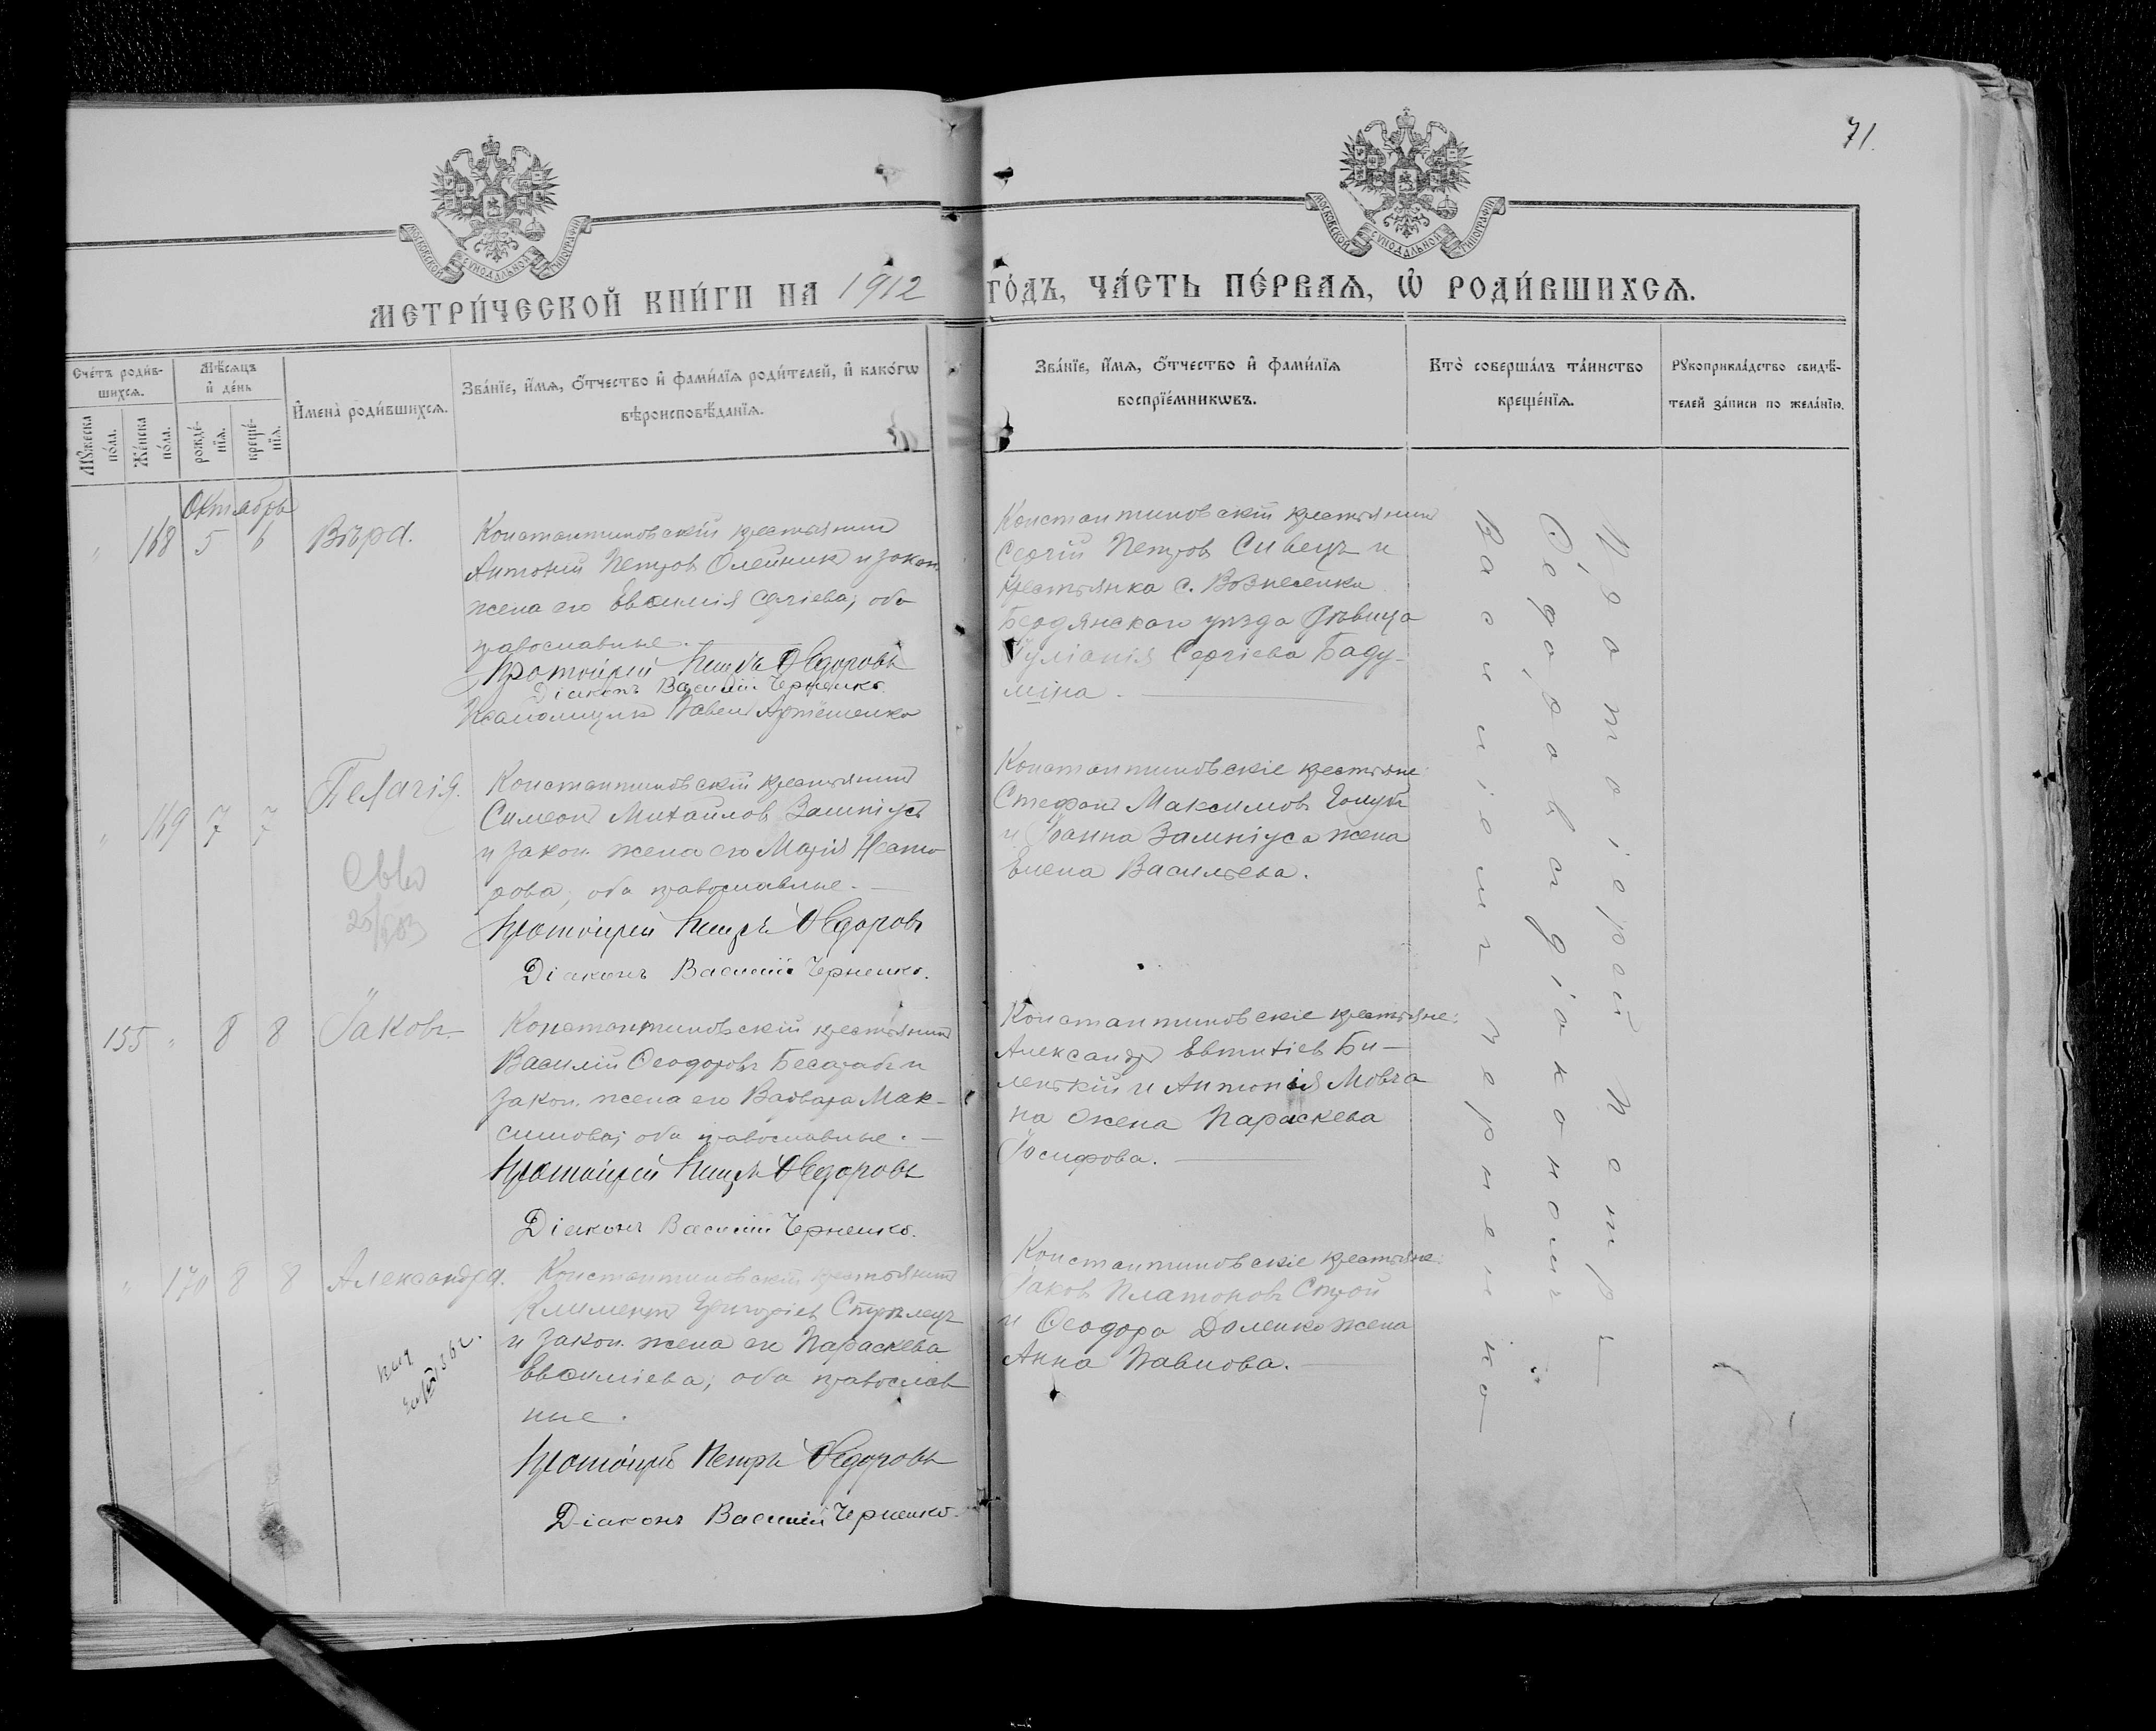 71.
МОСКОВСКОЙ СѴНОДАЛЬНОЙ ТИПОГРАФІИ
МОСКОВСКОЙ СѴНОДАЛЬНОЙ ТИПОГРАФІИ
МЕТРИ́ЧЕСКОЙ КНИ́ГИ НА 1912 ГО́ДЪ, ЧА́СТЬ ПЕ́РВАѦ, Ѡ҆ РОДИ́ВШИХСѦ.
Сче́тъ роди́в-
шихсѧ.
Мѣ́сѧцъ
и҆ де́нь
Мꙋ́жеска
по́ла.
Же́нска
по́ла.
рожде́-
нїѧ.
креще́-
нїѧ.
И҆мена̀ роди́вшихсѧ.
Зва́нїе, и҆́мѧ, ѻ҆́тчество и҆ фами́лїѧ роди́телей, и҆ како́гѡ
вѣроисповѣ́данїѧ.
Зва́нїе, и҆́мѧ, ѻ҆́тчество и҆ фами́лїѧ
воспрїе́мникѡвъ.
Кто̀ соверша́лъ та́инство
креще́нїѧ.
Рꙋкоприкла́дство свидѣ́-
телей за́писи по жела́нїю.
Октябрь
" 168 5 6 Вѣра.
Константиновскій крестьянинъ
Антоній Петровъ Олейник и закон.
жена его Евѳимія Сергіева; оба
православные.
Протоіерей Петръ Ѳедоровъ
Діаконъ Василій Черненко.
Псаломщикъ Павелъ
Константиновскій крестьянинъ
Сергій Петровъ Сивецъ и
крестьянка с. Вознесенки
Бердянскаго уѣзда дѣвица
Іуліанія Сергіева Баду-
мина.
" 169 7 7 Пелагія.
Константиновскій крестьянинъ
Симеонъ Михайловъ Замніусъ
и закон. жена его Марія
оба православные.
Протоіерей Петръ Ѳедоровъ
Діаконъ Василій Черненко.
Константиновскіе крестьяне:
Стефанъ Максимовъ Голубъ
и Іоанна Замніуса жена
Елена Васильева.
155 " 8 8 Іаковъ.
Константиновскій крестьянинъ
Василій Ѳеодоровъ Бесарабъ и
закон. жена его Варвара Мак-
симова; оба православные.
Протоіерей Петръ Ѳедоровъ
Діаконъ Василій Черненко.
Константиновскіе крестьяне:
Александръ Евтихіевъ Би-
ленькій и Антонія Мовча
на жена Параскева
Іосифова.
" 170 8 8 Александра.
Константиновскій крестьянинъ
Климентъ Григоріевъ Стрѣлецъ
и закон. жена его Параскева
Евѳиміева; оба православ
ные.
Протоіерей Петръ Ѳедоровъ
Діаконъ Василій Черненко.
Константиновскіе крестьяне:
Іаковъ Платоновъ Строй
и Ѳеодора Доленко жена
Анна Павлова.
Протоіерей Петръ
Ѳедоровъ съ діакономъ
Василіемъ Черненко